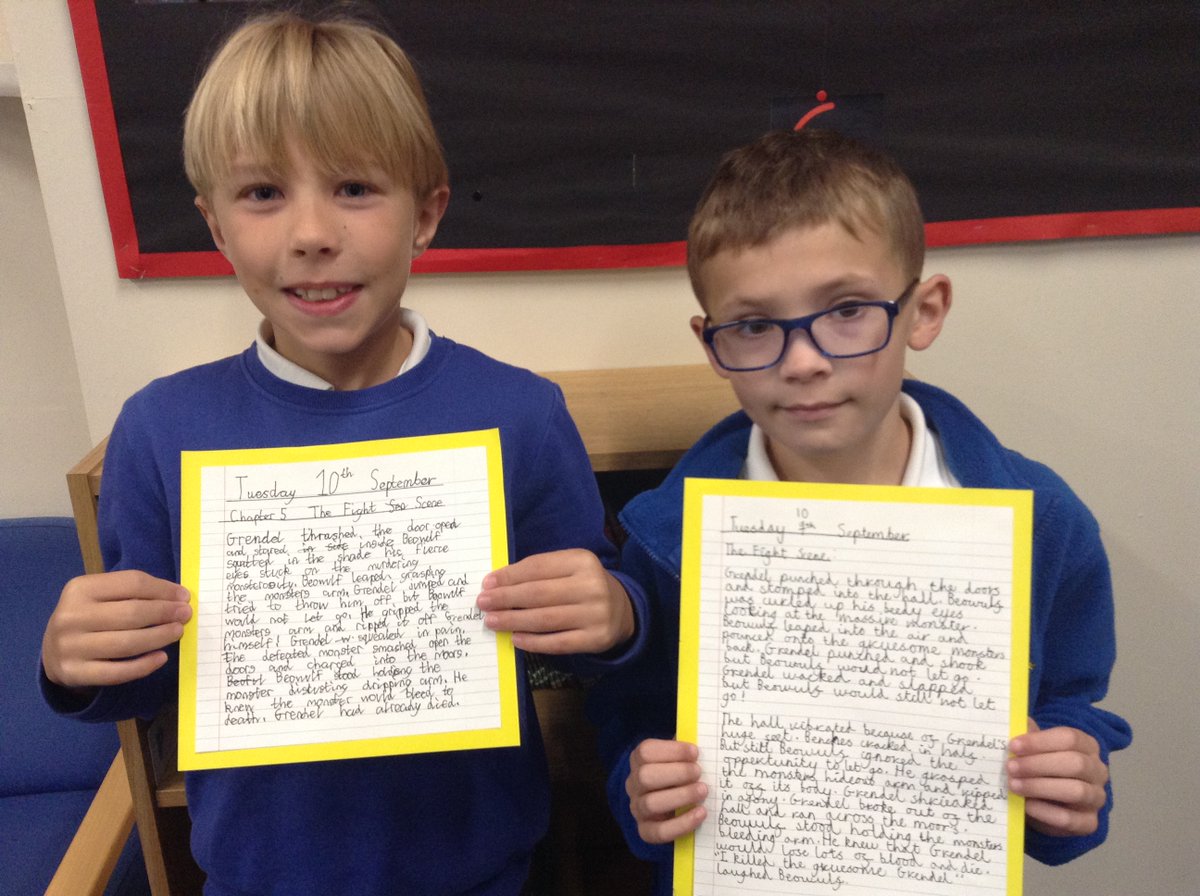 Tuesday 10th September
Chapter 5 The Fight Sce Scene
Grendel thrashed, the door open
and stared, inside Beowulf
squatted in the shade his fierce
eyes stuck on the murdering
monsterosity. Beowulf leaped grasping
the monsters arm. Grendel jumped and
tried to throw him off, but Beowulf
would not let go. He gripped the
monsters arm and ripped it off Grendel
himself! Grendel squealed in pain.
The defeated monster smashed open the
doors and charged into the moors.
Beowulf stood holding the
monster disgusting dripping arm. He
knew the monster would bleed to
death. Grendel had already died.
10
Tuesday 9th September
The Fight Scene.
Grendel punched through the doors
and stomped into the hall. Beowulf
was curled up his beedy eyes
looking at the massive monster.
Beowulf leaped into the air and
pounced onto the gruesome monsters
back. Grendel punched and shook
but Beowulf would not let go.
Grendel wacked and slapped
but Beowulf would still not let
go!
The hall vibrated because of Grendel's
huge feet. Benches cracked in half.
But still Beowulf ignored the
oppertunity to let go. He grasped
the monsters hideout arm and ripped
it off its body. Grendel shrieked
in agony. Grendel broke out of the
hall and ran across the moors.
Beowulf stood holding the monsters
bleeding arm. He knew that Grendel
would lose lots of blood and die.
"I killed the gruesome Grendel"
laughed Beowulf.